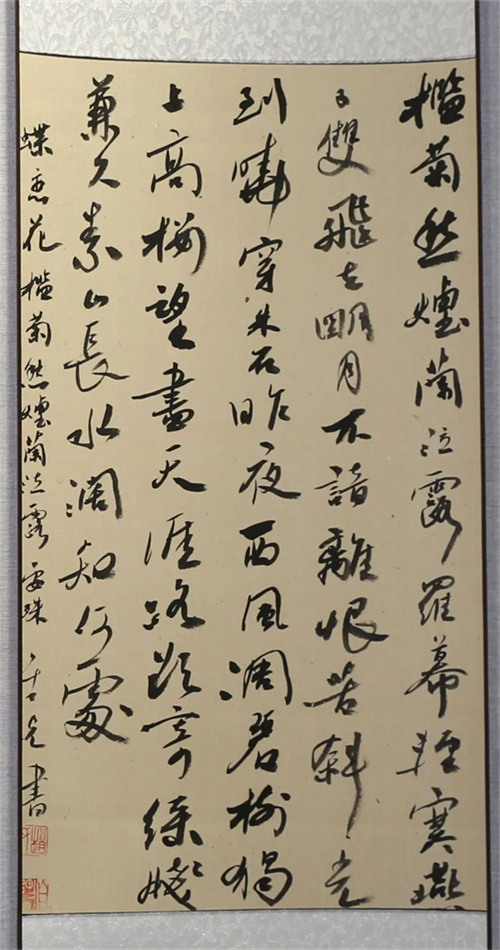 檻菊愁煙蘭泣露羅幕輕寒燕
子雙飛去明月不諳離恨苦斜光
到曉穿朱戶昨夜西風凋碧樹獨
上高樓望盡天涯路欲寄綵牋
兼尺素山長水闊知何處
蝶恋花檻菊愁煙蘭泣露晏殊書